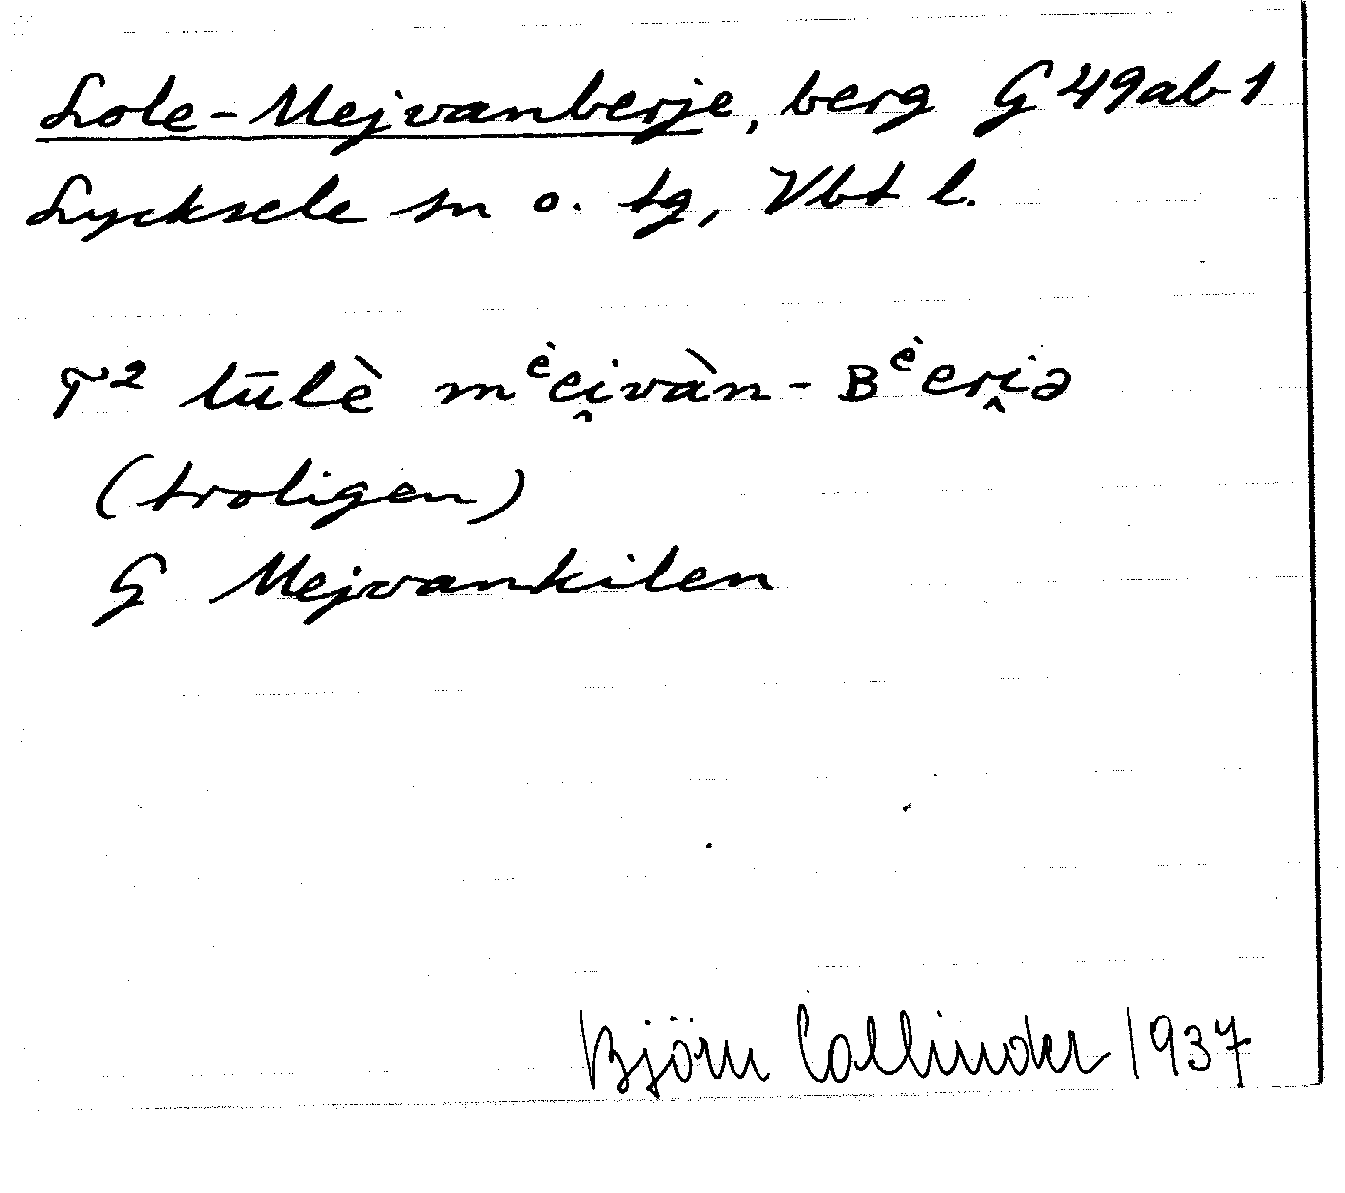 Lole-Mejvanberje, berg G 49ab 1
Lycksele sn o. tg, Vbt l.
T² lūlè mᵉ̀ei̯vàn-Bᵉ̀eri̯ə
(troligen)
G Mejvankilen
Björn Collinder 1937